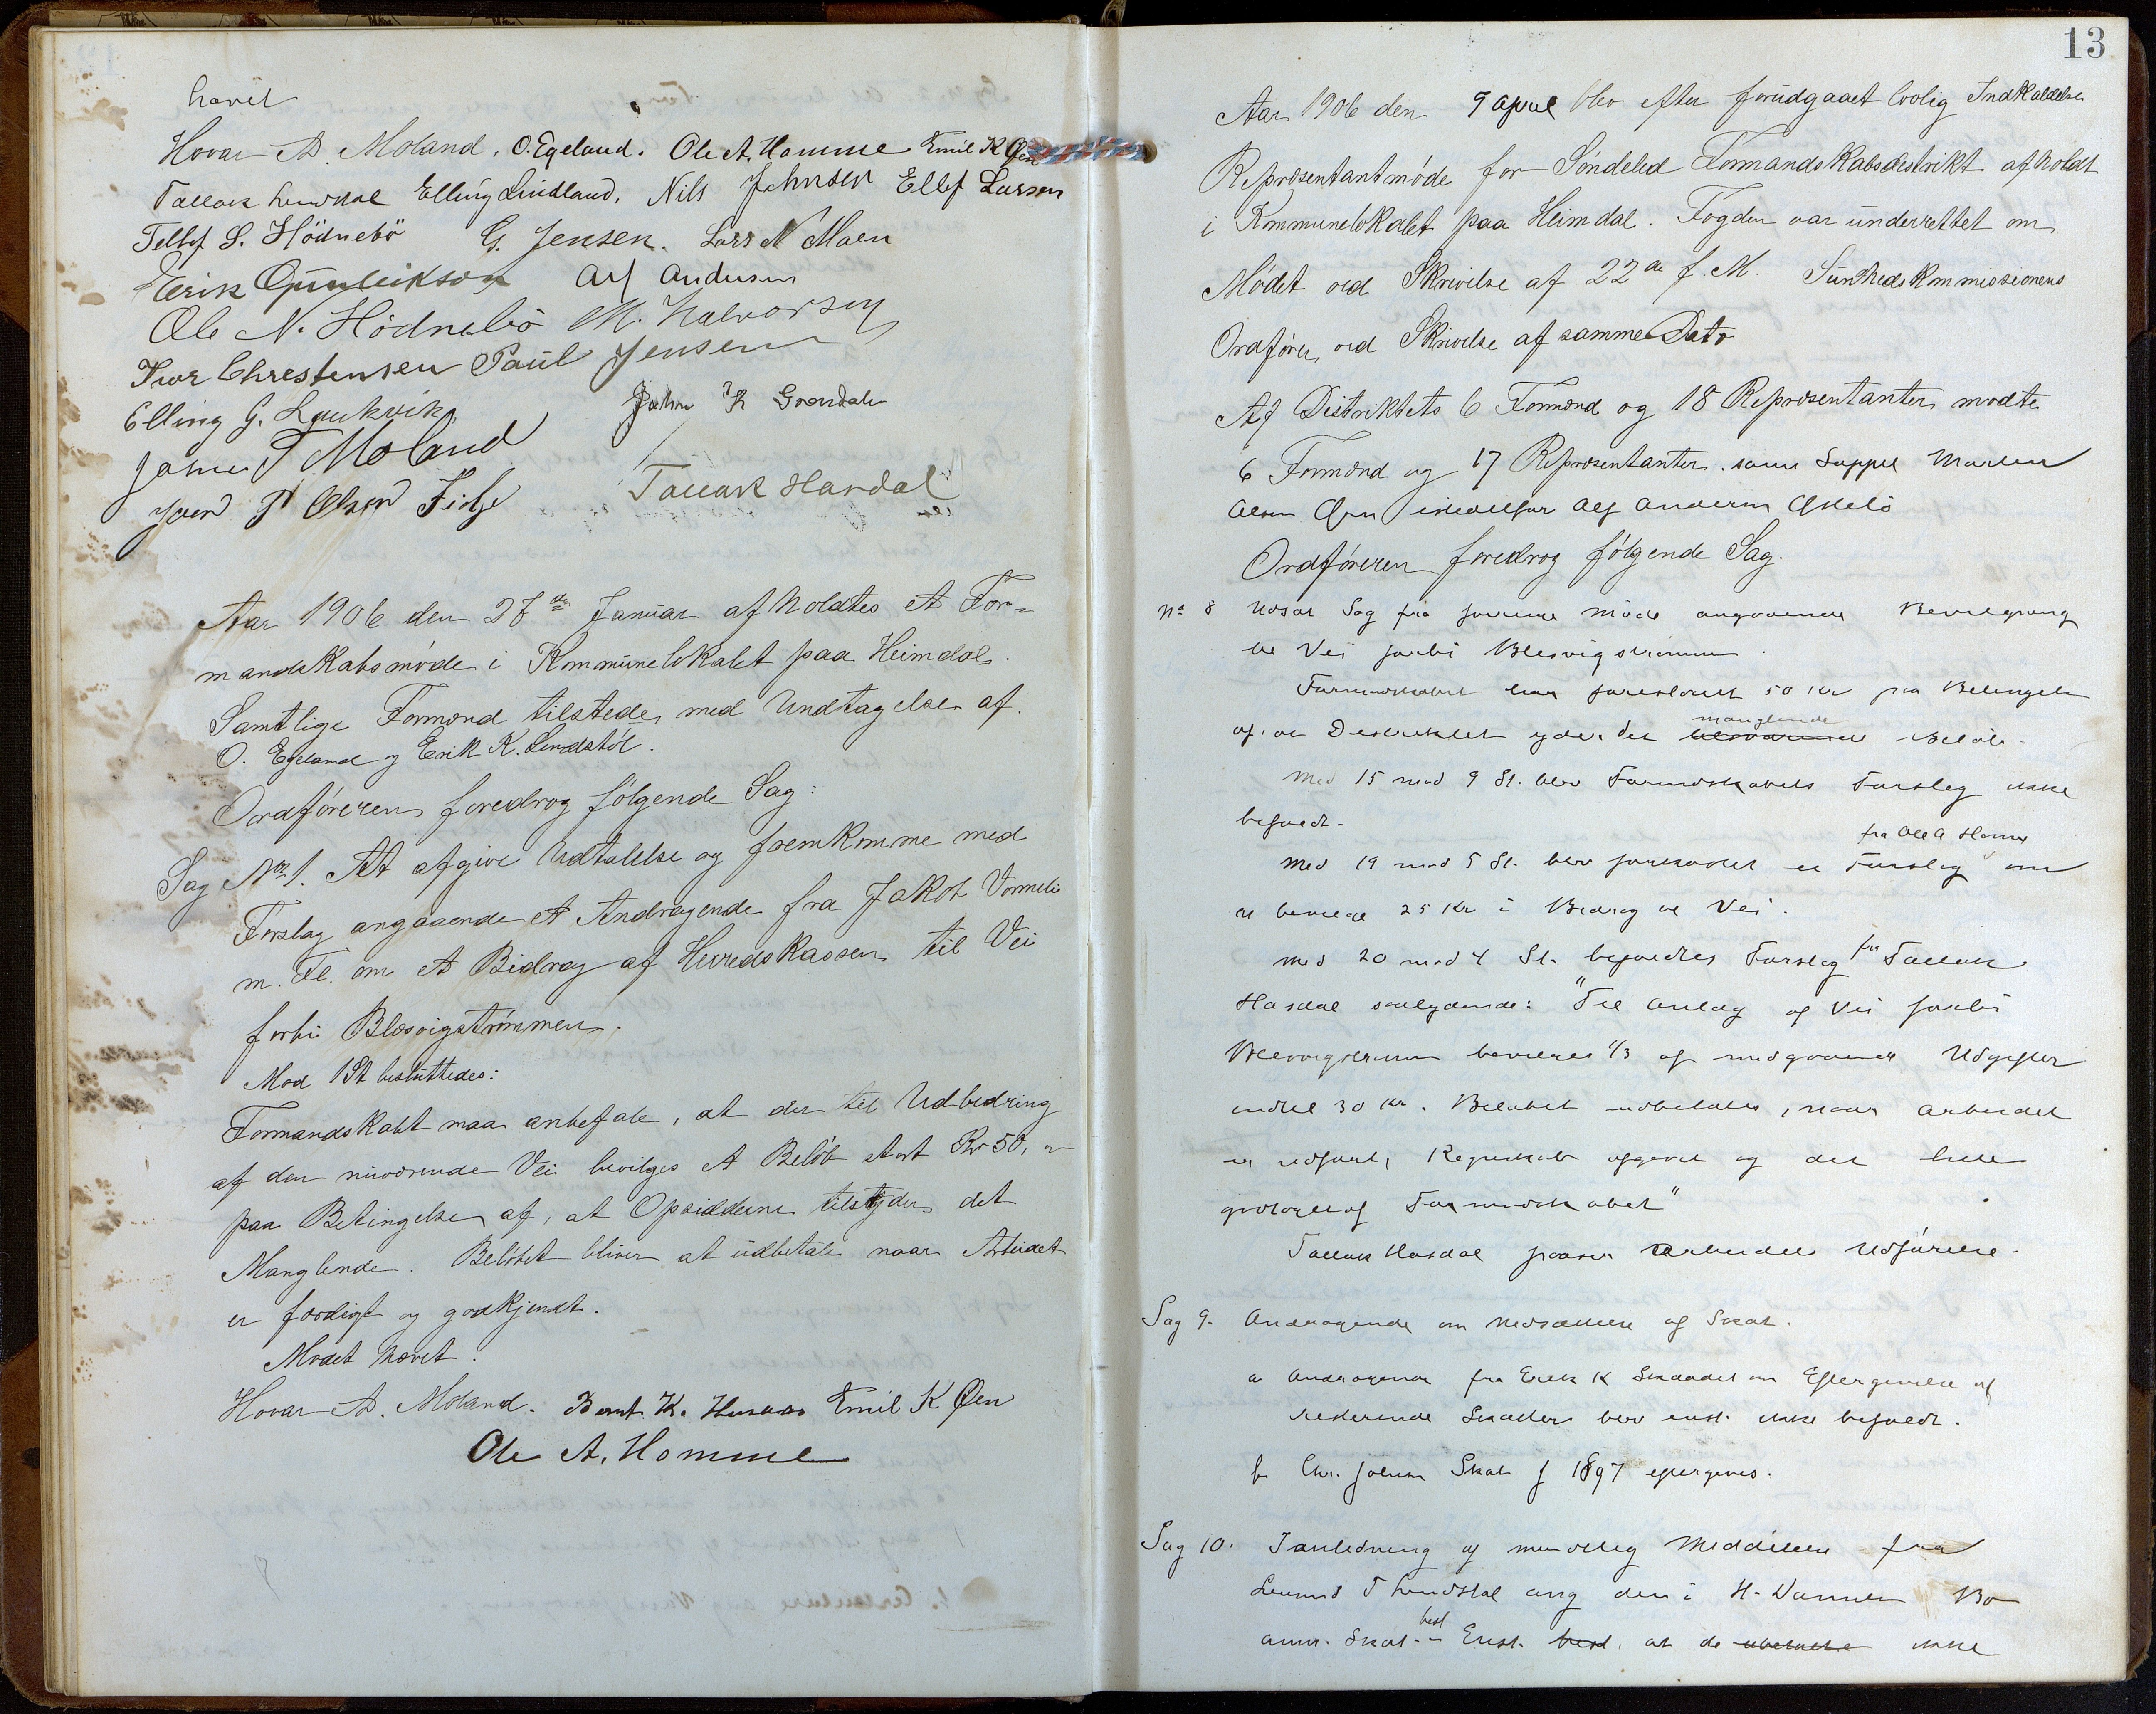 hævet
Hovar A. Moland. O. Egeland. Ole A. Homme Emil K Øen
Tallak Lindstøl Elling Lindland, Nils Johnsen Ellef Larsen
Tellef S. Hödnebö G. Jensen. Lars N Moen
Terik Gunleikson Alf Andersen
Ole N. Hödnebö M. Halvorsen
Ivar Chrestensen Paul Jensen
Elling G. Laukvik John K Grændalen
James T Moland
Jven P Olsen Fidje Tallak Hasdal
Aar 1906 den 27de Januar afholdtes et For=
mandskabsmøde i Kommunelokalet paa Heimdal.
Samtlige Formænd tilstede, med Undtagelse af.
O. Egeland og Eerik K. Lindstöl.
Ordföreren foredrog følgende Sag:
Sag No 1. At afgive Udtalelse og fremkomme med
Forslag angaaende et Andragende fra Jakob Vormeli
m. Fl. om et Bidrag af Herredskassen til Vei
forbi Blesvigstrømmen.
Mod 1 St besluttedes:
Formandskabet maa anbefale, at der til Udbedring
af den nuværende Vei bevilges et Beløb stort Kr 50,
paa Betingelse af, at Opsidderne tilskyder det
Manglende. Beløbet bliver at udbetale naar Arbeidet
er færdigt og godkjendt.
Mødet hævet.
Hovar A. Moland. Bernt. K. Emil K Øen
Ole A. Homme
13
Aar 1906 den 9 April blev efter forudgaaet lovlig Indkaldelse
Repræsentantmøde for Söndeled Formandskabsdistrikt afholdt
i Kommunelokalet paa Heimdal. Fogden var underrettet om
Mödet ved Skrivelse af 22de f. M. Sundhedskommissionens
Ordfører ved Skrivelse af samme Dato
Af Distriktets 6 Formænd og 18 Repræsentanter mødte
6 Formænd og 17 Repræsentanter. samt Suppl Marten
Olsen Øen istedetfor Alf Andersen Askelö
Ordföreren foredrog følgende Sag.
No 8 Udsat Sag fra forrige Møde angaaende Bevilgning
til Vei forbi Blesvigstrømmen.
Formandskabet har foreslaaet 50 Kr paa Betingelse
af. at Distriktet yder det manglende Beløb.
Med 15 mod 9 St. blev Formandskabets Forslag ikke
bifaldt.
Med 19 mod 5 St. blev forkastet et Forslag fra Ole A Homme om
at bevilge 25 Kr i Bidrag til Vei.
Med 20 mod 4 St. bifaldtes Forslag fra Tallak
Hasdal saalydende: "Til Anlæg af Vei forbi
Blesvigstrømmen bevilges 1/3 af medgaaende Udgifter
indtil 30 Kr. Beløbet udbetales, naar Arbeidet
er udført, Regnskab afgivet og det hele
godtaget af Formandskabet"
Tallak Hasdal paaser Arbeidets Udførelse.
Sag 9. Andragende om Nedsættelse af Skat.
a Andragende fra Erek K om Eftergivelse af
resterende Skatter blev enst. ikke bifaldt.
b Chr. Johnsen Skat f 1897 eftergives.
Sag 10. I anledning af mundtlig Meddelelse fra
T Lindstøl ang den i H. Bo
anm. Skat. best Enst. best. at de ikke